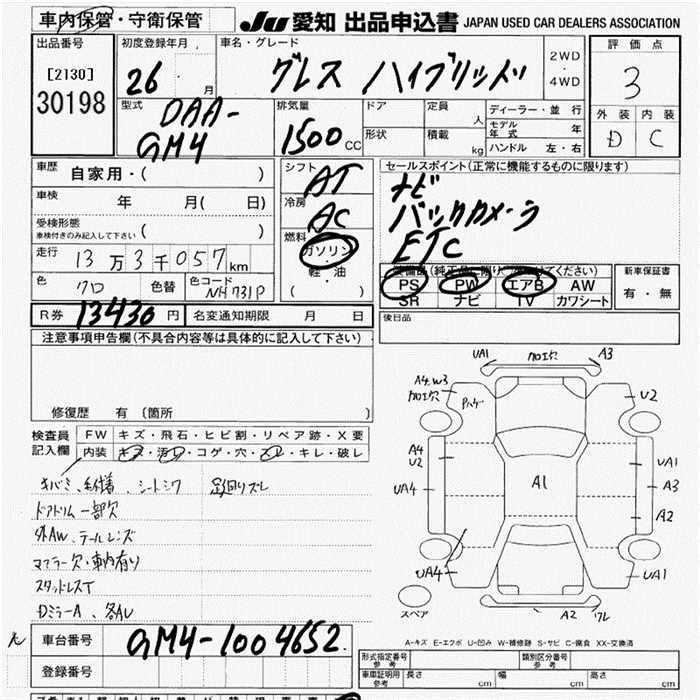 車内保管・守衛保管 JU 愛知 出品申込書 JAPAN USED CAR DEALERS ASSOCIATION
出品番号 初度登録年月 車名・グレード 2WD・4WD 評価点
[2130] 26 月 グレス ハイブリッド 3
30198 型式 DAA-GM4 排気量 1500 CC ドア 定員 人 ディーラー・並行 外装 内装
形状 積載 kg モデル年式 年 D C
ハンドル 左・右
車歴 自家用・( ) シフト AT セールスポイント(正常に機能するものに限ります)
車検 年 月( 日) 冷房 AC ナビ
受検形態 バックカメーラ
車検付きのみ記入して下さい ( ) 燃料 ガソリン ETC
走行 13万3千057km 軽・油
( )
色 クロ 色替 色コード NH731P PS PW エアB AW 新車保証書
SR ナビ TV カワシート 有・無
R券 13430円 名変通知期限 月 日 後日品
注意事項申告欄(不具合内容等は具体的に記入して下さい)
修復歴 有 〔箇所 〕
UA1 加工欠 A3
A4.W3
加工欠 U2
A4
U2 UA1
UA4 A1 A3
A2
UA4 UA1
スペア A2 ワレ
検査員記入欄 FW キズ・飛石・ヒビ割・リペア跡・X要
内装 キズ・汚レ・コゲ・穴・スレ・キレ・破レ
シートシワ 足回りズレ
ドアドリム一部欠
外AW、テールレンズ
マフラー欠・車内有り
スタッドレスT
DミラーA、各AU
A-キズ E-エクボ U-凹み W-補修跡 S-サビ C-腐食 XX-交換済
車台番号 GM4-1004652
登録番号
形式指定番号 参考 類別区分番号 参考
車庫証明用 参考 長さ cm 幅 cm 高さ cm